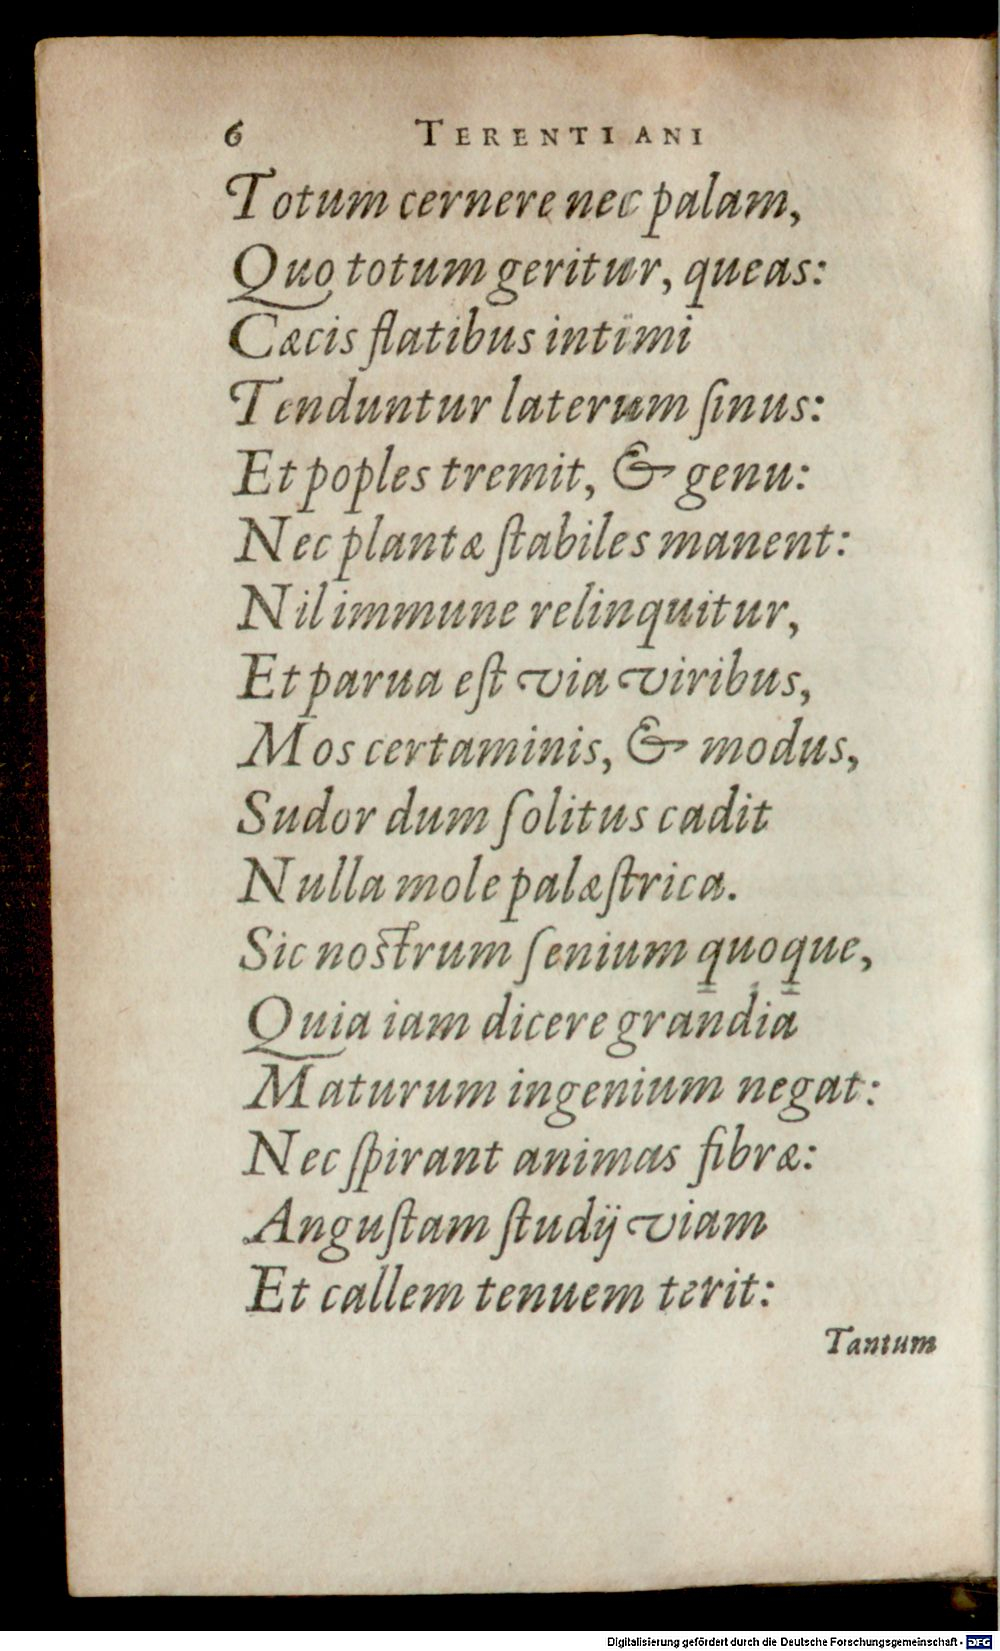 6 TERENTIANI
Totum cernere nec palam,
Quo totum geritur, queas:
Cæcis flatibus intimi
Tenduntur laterum ſinus:
Et poples tremit, & genu:
Nec plantæ ſtabiles manent:
Nil immune relinquitur,
Et parua eſt via viribus,
Mos certaminis, & modus,
Sudor dum ſolitus cadit
Nulla mole palæſtrica.
Sic noſtrum ſenium quoque,
Quia iam dicere grandia
Maturum ingenium negat:
Nec ſpirant animas fibræ:
Anguſtam ſtudij viam
Et callem tenuem terit:
Tantum
Digitalisierung gefördert durch die Deutsche Forschungsgemeinschaft - DFG